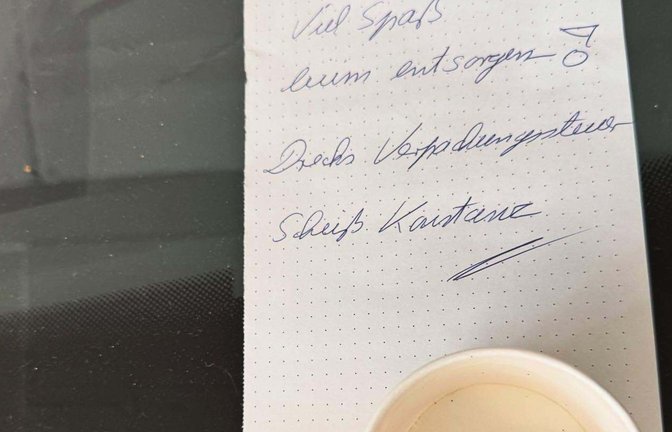 Viel Spaß
beim entsorgen!
Drecks Verpackungssteuer
Scheiß Konstanz